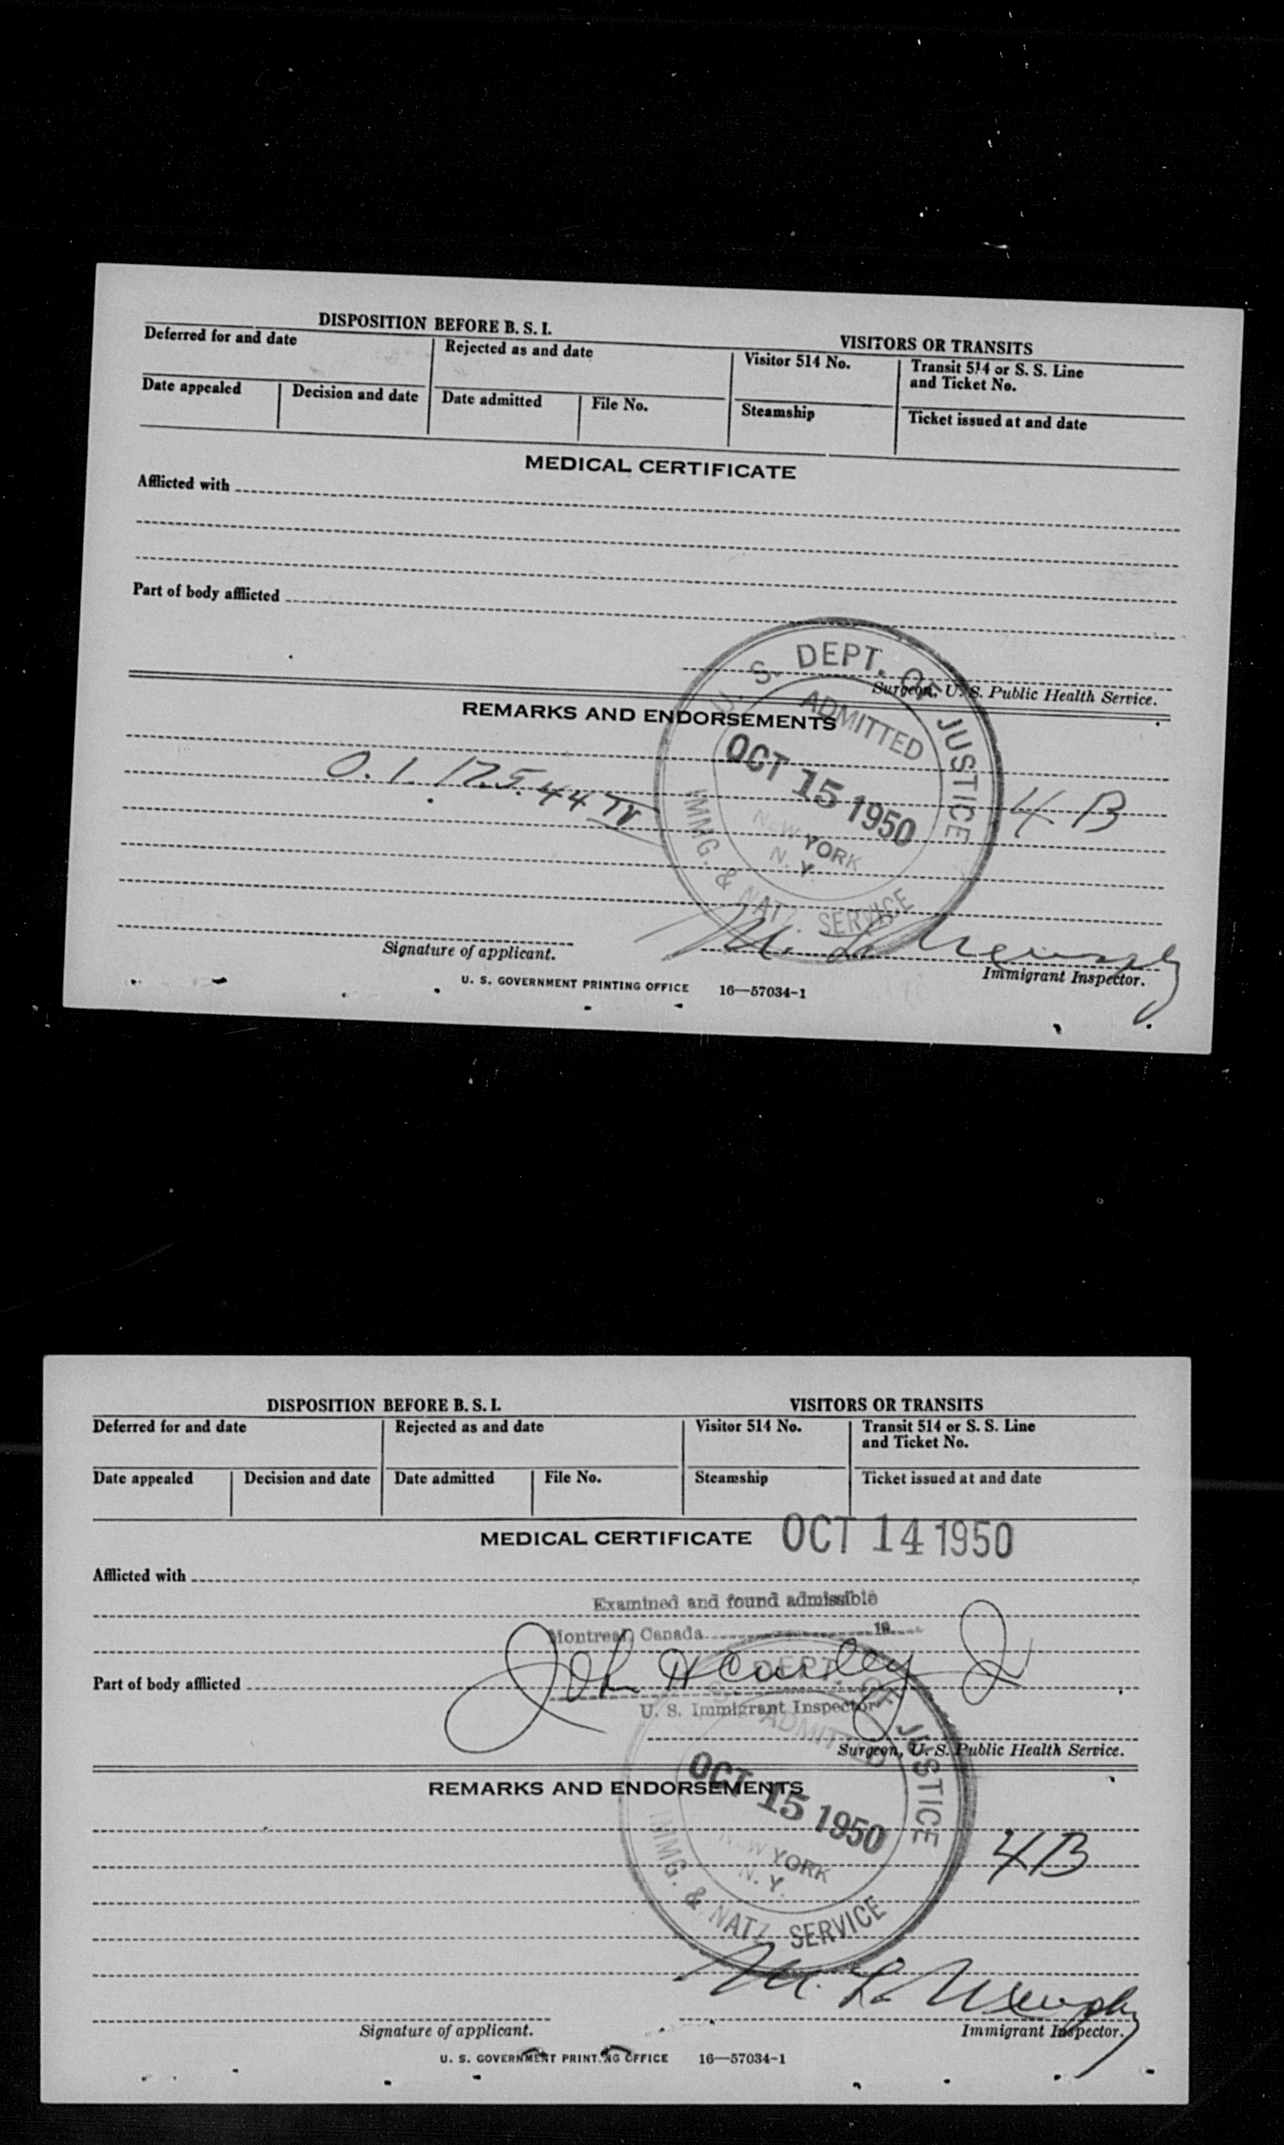 DISPOSITION BEFORE B. S. I.
VISITORS OR TRANSITS
Deferred for and date
Rejected as and date
Visitor 514 No.
Transit 514 or S. S. Line
and Ticket No.
Date appealed
Decision and date
Date admitted
File No.
Steamship
Ticket issued at and date
MEDICAL CERTIFICATE
Afflicted with
Part of body afflicted
Surgeon, U. S. Public Health Service.
REMARKS AND ENDORSEMENTS
U. S. DEPT. OF JUSTICE
ADMITTED
OCT 15 1950
NEW YORK
N. Y.
IMMG. & NATZ. SERVICE
4 B
M. L.
Signature of applicant.
Immigrant Inspector.
U. S. GOVERNMENT PRINTING OFFICE 16—57034-1
DISPOSITION BEFORE B. S. I.
VISITORS OR TRANSITS
Deferred for and date
Rejected as and date
Visitor 514 No.
Transit 514 or S. S. Line
and Ticket No.
Date appealed
Decision and date
Date admitted
File No.
Steamship
Ticket issued at and date
MEDICAL CERTIFICATE
OCT 14 1950
Afflicted with
Examined and found admissible
Montreal, Canada 19
John H
Part of body afflicted
U. S. Immigrant Inspector
Surgeon, U. S. Public Health Service.
REMARKS AND ENDORSEMENTS
S. DEPT. OF JUSTICE
ADMITTED
OCT 15 1950
NEW YORK
N. Y.
IMMG. & NATZ. SERVICE
4B
M. L.
Signature of applicant.
Immigrant Inspector.
U. S. GOVERNMENT PRINTING OFFICE 16—57034-1